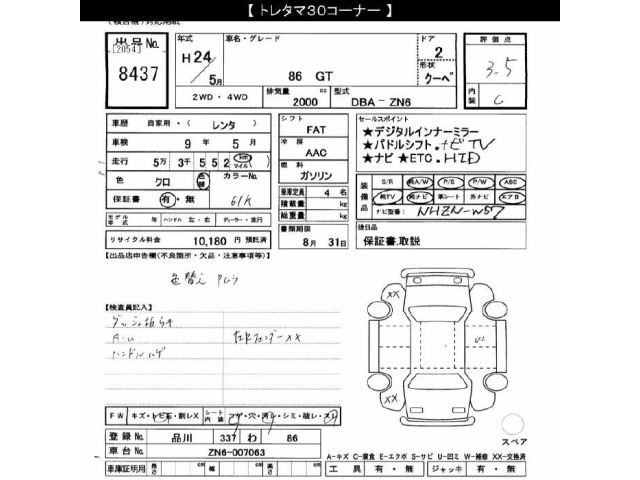 【 トレタマ30コーナー 】
出品 No.
[2054]
8437
年式
H 24
5月
車名・グレード
86 GT
2WD・4WD
排気量
2000 cc
型式
DBA－ZN6
ドア
2
形状
クーペ
評価点
3.5
内装
C
車歴
自家用・( レンタ )
車検
9 年 5 月
走行
5万 3千 5 5 2 km マイル
色
クロ
色替
カラーNo.
61K
保証書
有・無
モデル年式
年
ハンドル
左・右
ディーラー・並行
リサイクル料金
10,180 円 預託済
シフト
FAT
冷房
AAC
燃料
ガソリン
乗車定員
4 名
積載量
kg
総重量
kg
書類期限
8月 31日
セールスポイント
★デジタルインナーミラー
★パドルシフト ナビTV
★ナビ ★ETC.HID
装備品
S/R
純A/W
P/S
P/W
ABS
純TV
純ナビ
革シート
外ナビ
エアB
ナビ型番
NHZN-W57
後日品
保証書,取説
【出品店申告欄(不良箇所・欠品・注意事項等)】
色替え
【検査員記入】
A-U
XX
XX
U2
FW
キズ・トビ石・割レX
シート内装
コゲ・穴・汚レ・シミ・破レ・スレ
登録 No.
品川
337
わ
86
車台 No.
ZN6-007063
スペア
A-キズ C-腐食 E-エクボ S-サビ U-凹ミ W-補修 XX-交換済
車庫証明用
長さ
cm
幅
cm
高さ
cm
工具
有・無
ジャッキ
有・無